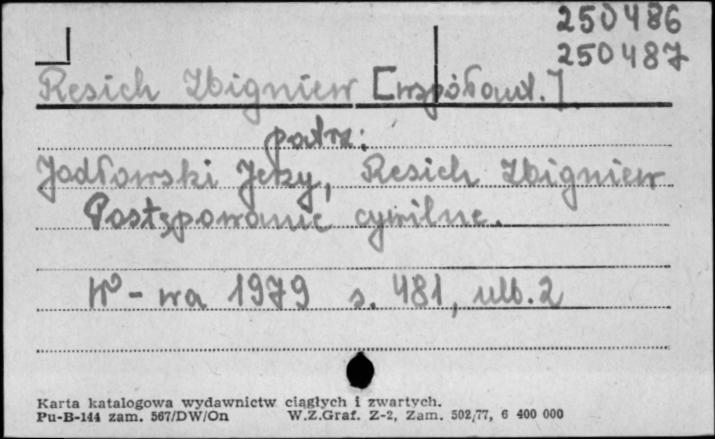 250486
250487
Resich Zbigniew [współaut.]
patrz:
Jodłowski Jerzy, Resich Zbigniew
Postępowanie cywilne.
W⁰-wa 1979 s. 481, nlb. 2
Karta katalogowa wydawnictw ciągłych i zwartych.
Pu-B-144 zam. 567/DW/On W.Z.Graf. Z-2, Zam. 502/77, 6 400 000